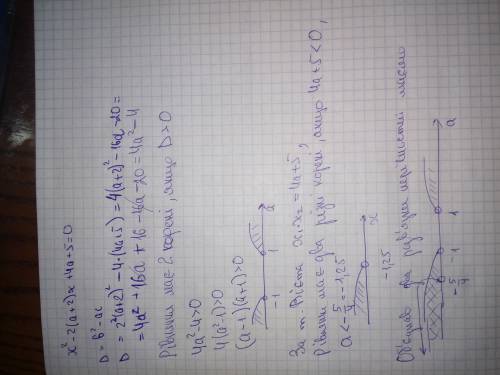 x² - 2(a+2)x + 4a + 5 = 0
D = b² - ac
D = 2²(a+2)² - 4·(4a+5) = 4(a+2)² - 16a - 20 =
= 4a² + 16a + 16 - 16a - 20 = 4a² - 4
Рівняння має 2 корені, якщо D > 0
4a² - 4 > 0
4(a² - 1) > 0
(a - 1)(a + 1) > 0
-1 1 a
За т. Вієта x₁·x₂ = 4a + 5;
рівняння має два різні корені, якщо 4a + 5 < 0,
a < -5/4 = -1,25
-1,25 x
два розв'язки
-5/4 -1 1 a